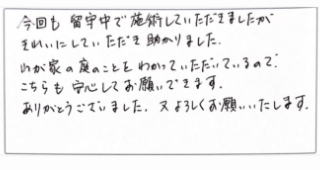 今回も 留守中で施術していただきましたが
きれいにしていただき助かりました.
我が家の庭のことをわかっていただいているので.
こちらも安心してお願いできます.
ありがとうございました. 又よろしくお願いいたします.